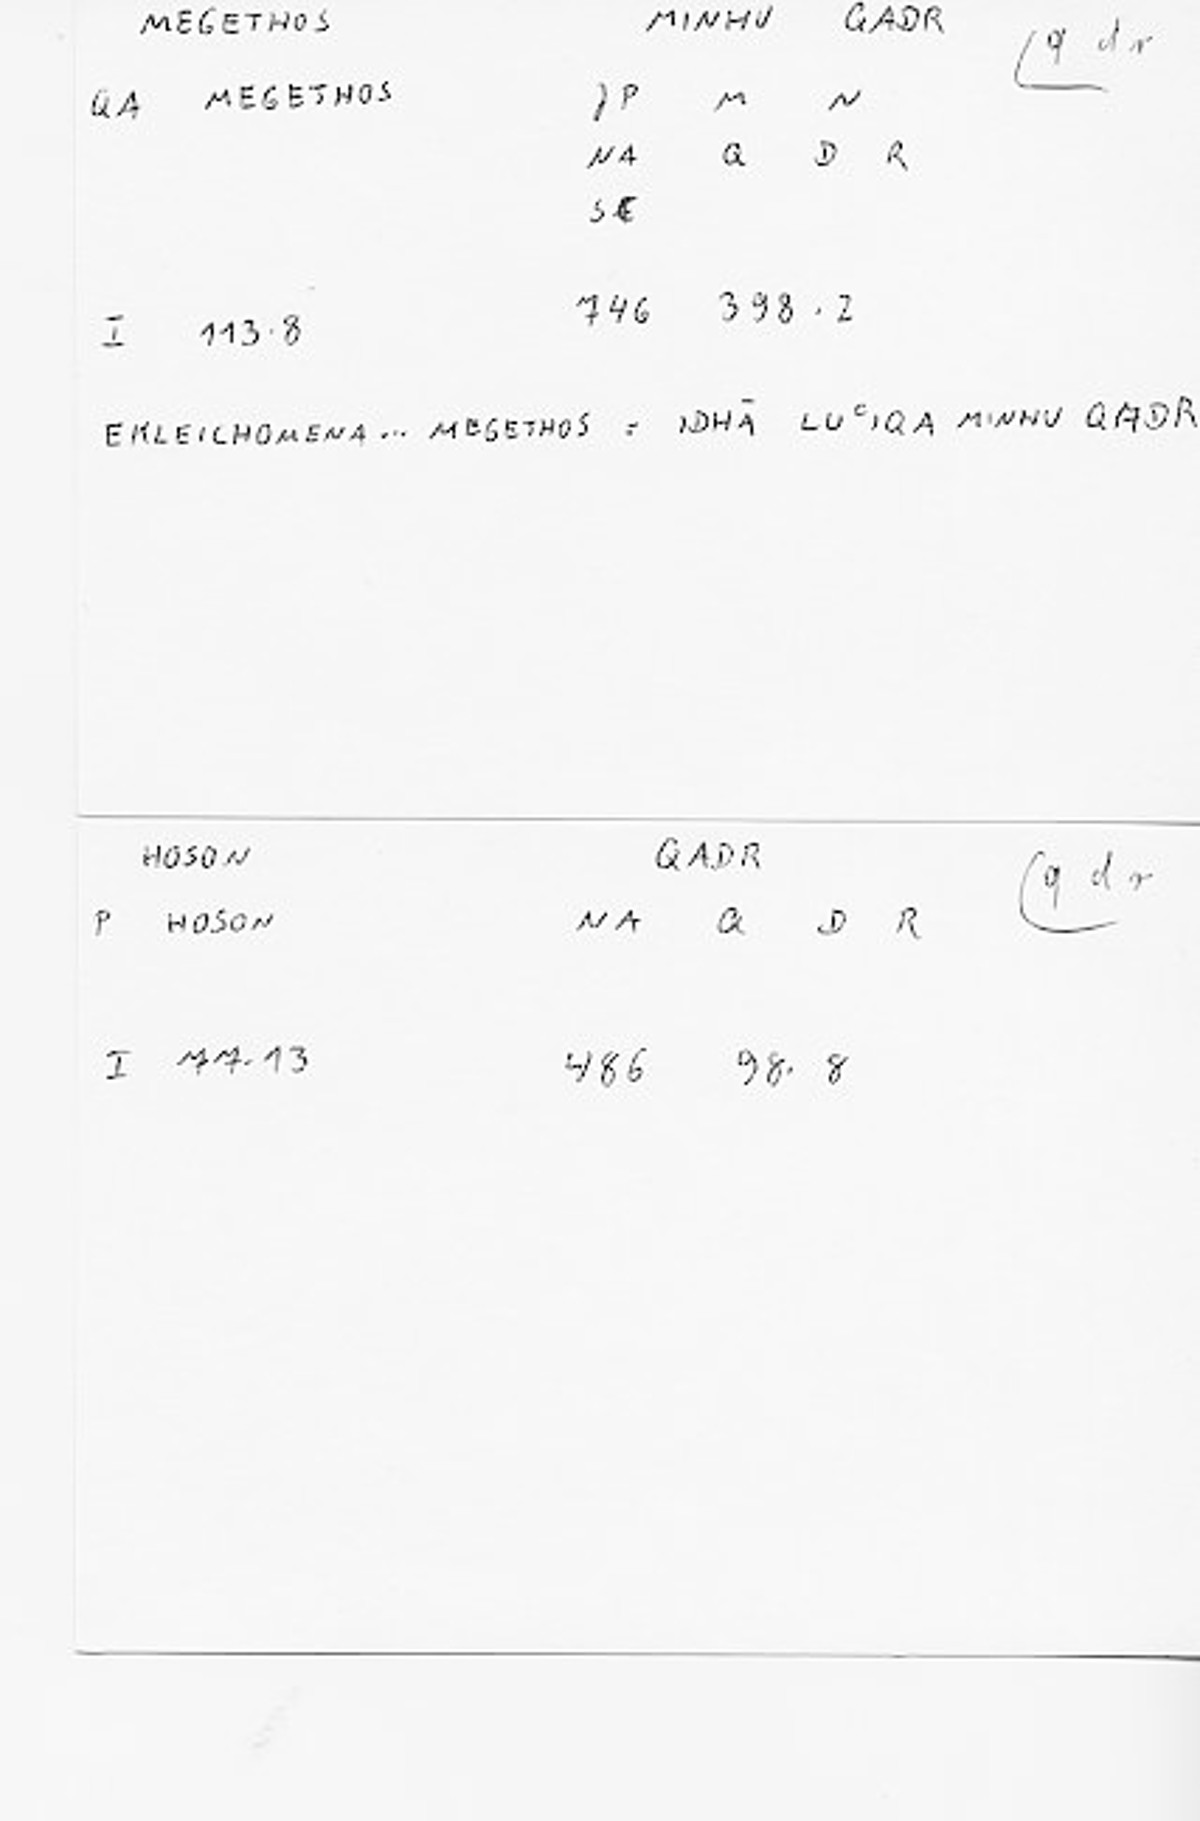 MEGETHOS MINHU QADR q d r
QA MEGETHOS P M N
NA Q D R
SE
I 113.8 746 398.2
EKLEICHOMENA... MEGETHOS : IDHĀ LUᶜIQA MINHU QADR
HOSON QADR q d r
P HOSON NA Q D R
I 77.13 486 98.8